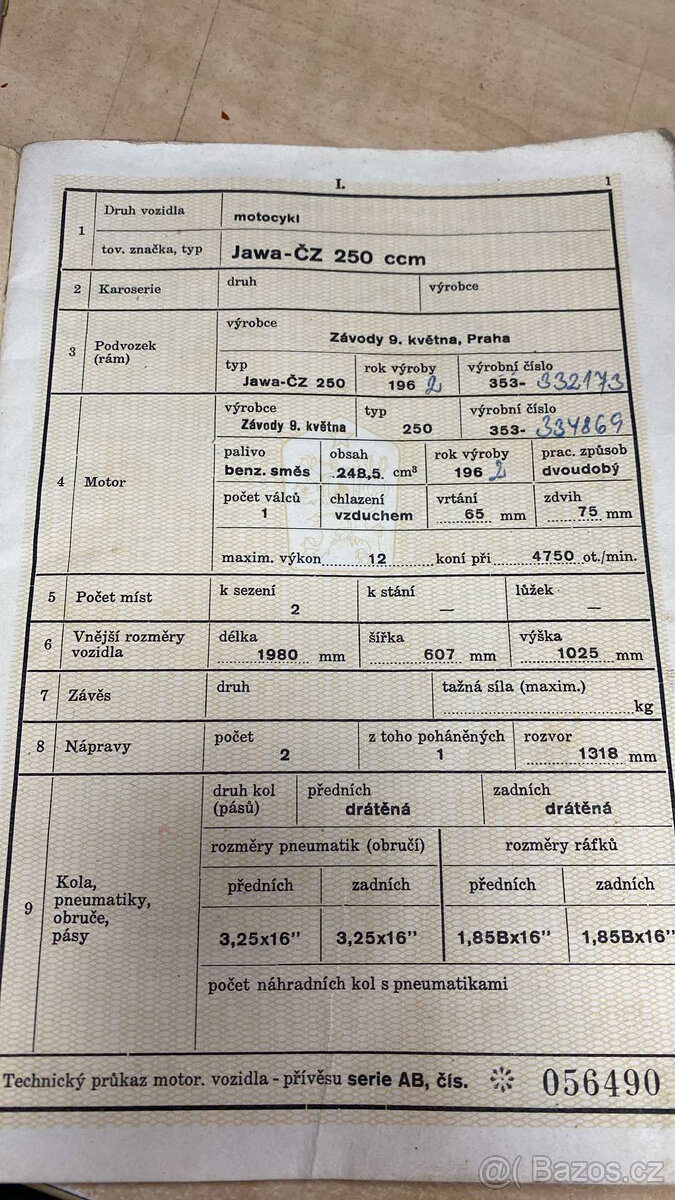 I.
1
1
Druh vozidla
motocykl
tov. značka, typ
Jawa-ČZ 250 ccm
2
Karoserie
druh
výrobce
3
Podvozek
(rám)
výrobce
Závody 9. května, Praha
typ
Jawa-ČZ 250
rok výroby
196 2
výrobní číslo
353- 332173
4
Motor
výrobce
Závody 9. května
typ
250
výrobní číslo
353- 334869
palivo
benz. směs
obsah
248,5. cm³
rok výroby
196 2
prac. způsob
dvoudobý
počet válců
1
chlazení
vzduchem
vrtání
65 mm
zdvih
75 mm
maxim. výkon 12 koní při 4750 ot./min.
5
Počet míst
k sezení
2
k stání
—
lůžek
—
6
Vnější rozměry
vozidla
délka
1980 mm
šířka
607 mm
výška
1025 mm
7
Závěs
druh
tažná síla (maxim.)
kg
8
Nápravy
počet
2
z toho poháněných
1
rozvor
1318 mm
9
Kola,
pneumatiky,
obruče,
pásy
druh kol
(pásů)
předních
drátěná
zadních
drátěná
rozměry pneumatik (obručí)
rozměry ráfků
předních
zadních
předních
zadních
3,25x16"
3,25x16"
1,85Bx16"
1,85Bx16"
počet náhradních kol s pneumatikami
Technický průkaz motor. vozidla - přívěsu serie AB, čís. 056490
@( Bazos.cz